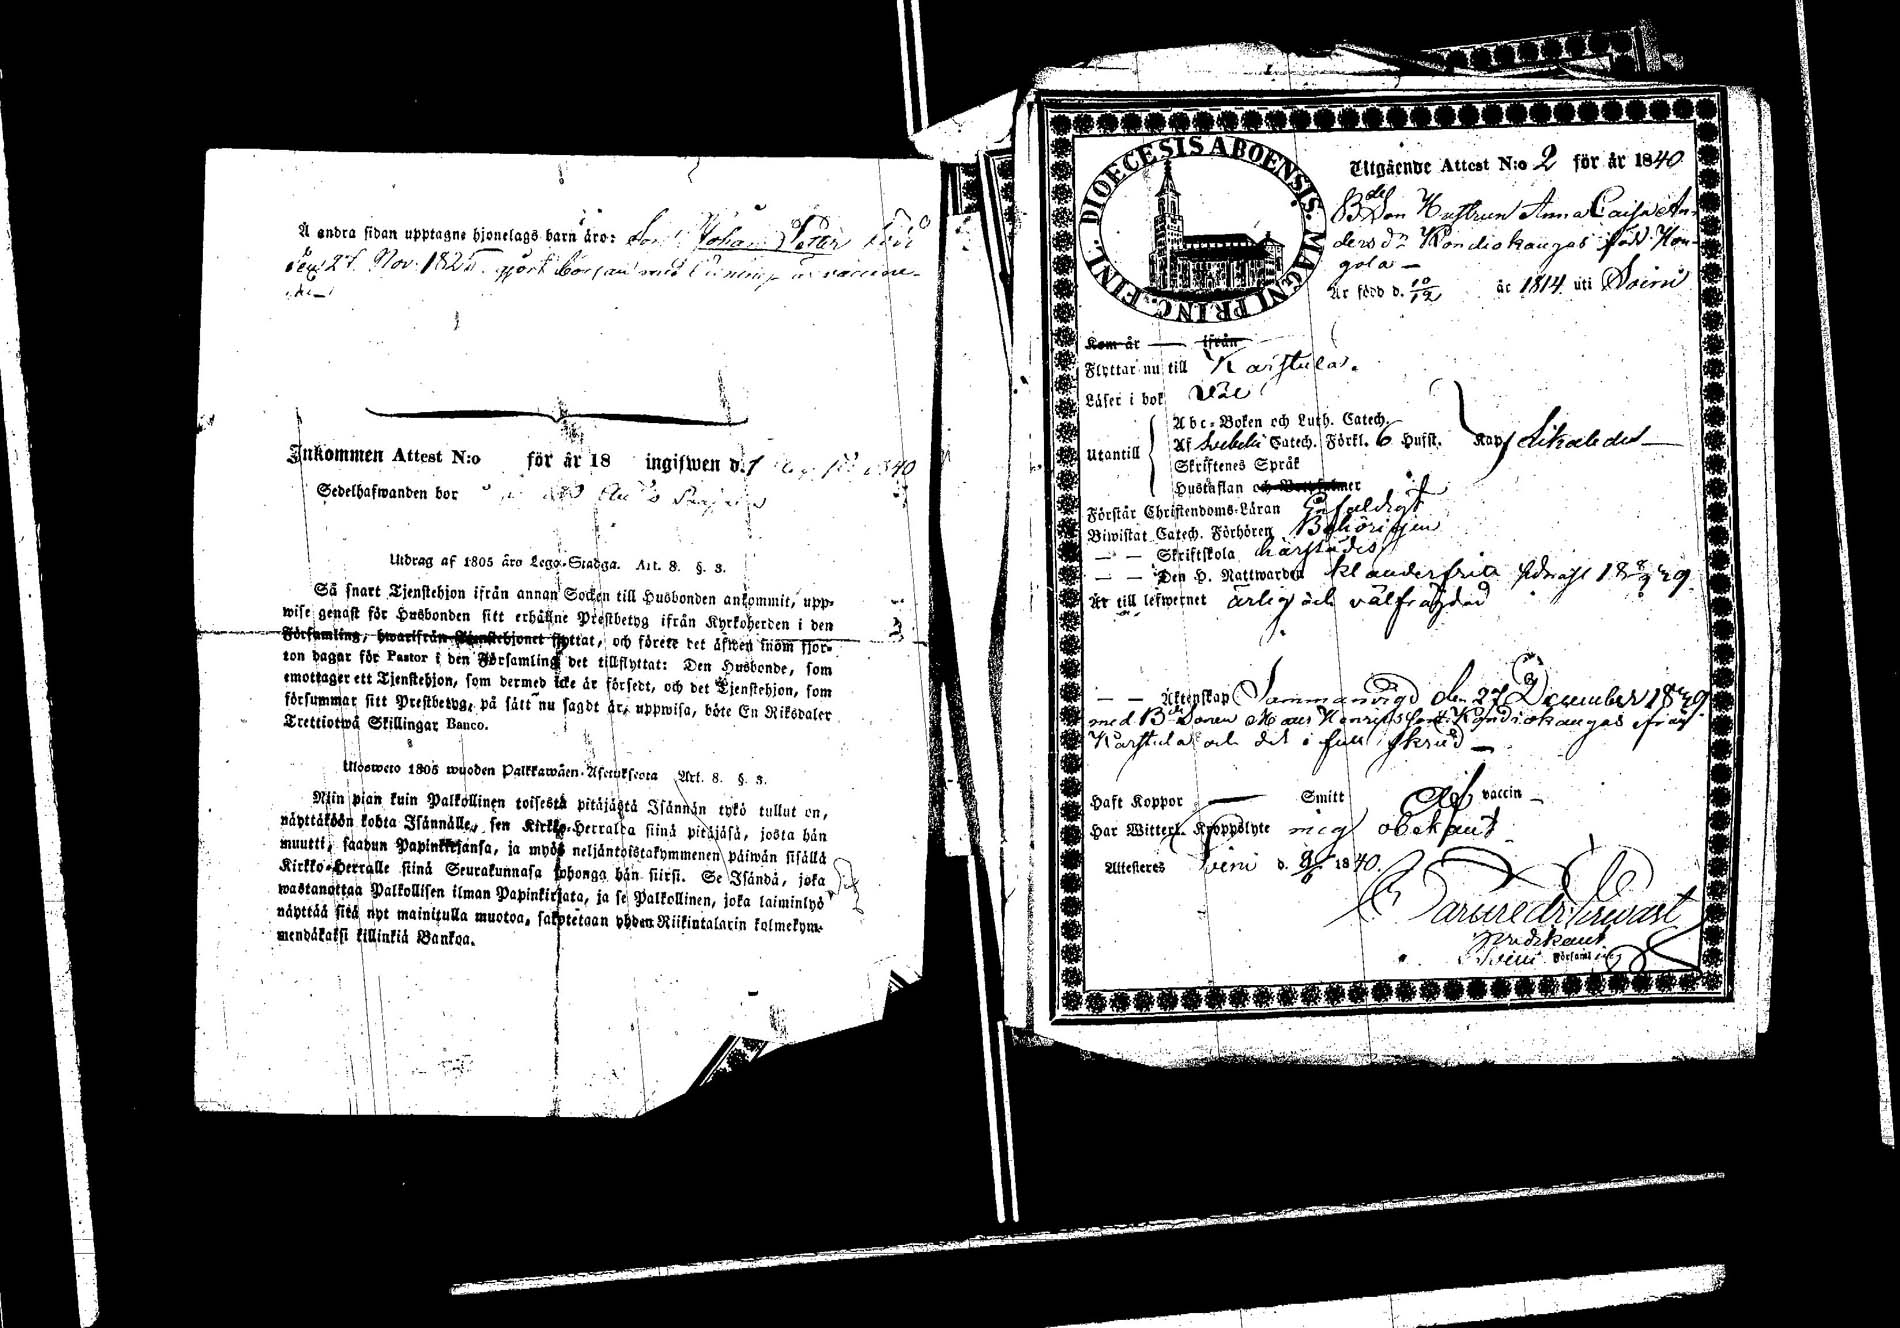 Å andra sidan upptagne hjonelags barn äro: Son Johan Petter född
den 27 Nov. 182
Inkommen Attest N:o för år 18 ingifwen d. 1840
Sedelhafwanden bor
Utdrag af 1805 åro Lego-Stadga. Art. 8. §. 3.
Så snart Tjenstehjon ifrån annan Socken till Husbonden ankommit, upp-
wise genast för Husbonden sitt erhållne Prestbetyg ifrån Kyrkoherden i den
Församling, hwarifrån Tjenstehjonet flyttat, och förete det äfwen inom fjor-
ton dagar för Pastor i den Församling det tillflyttat: Den Husbonde, som
emottager ett Tjenstehjon, som dermed icke är försedt, och det Tjenstehjon, som
försummar sitt Prestbetyg, på sätt nu sagdt är, uppwisa, böte En Riksdaler
Trettiotwå Skillingar Banco.
Ulosweto 1805 wuoden Palkkawäen-Asetuksesta Art. 8. §. 3.
Niin pian kuin Palkollinen toisesta pitäjästä Isännän tykö tullut on,
näyttäköön kohta Isännälle, sen Kirkko-Herralta siinä pitäjäsä, josta hän
muutti, saadun Papinkirjansa, ja myös neljäntoistakymmenen päiwän sisällä
Kirkko-Herralle siinä Seurakunnasa johonga hän siirsi. Se Isändä, joka
wastanottaa Palkollisen ilman Papinkirjata, ja se Palkollinen, joka laiminlyö
näyttää sitä nyt mainitulla muotoa, sakotetaan yhden Riikintalarin kolmekym-
mendäkaksi killinkiä Bankoa.
DIOECESIS ABOENSIS. MAGNI PRINC. FINL.
Utgående Attest N:o 2 för år 1840
Bdel Don Hustrun Anna Caisa An-
ders dr Kondiokangas född Hon-
gola —
Är född d. 10/12 år 1814 uti Soini
Kom år — ifrån
Flyttar nu till Karstula.
Läser i bok Väl
Utantill
Abc-Boken och Luth. Catech.
Af Svebelii Catech. Förkl. 6 Hufst. Kap. Likaledes —
Skriftenes Språk
Hustaflan och Botpsalmer
Förstår Christendoms-Läran Enfaldigt
Biwistat Catech. Förhören Behörigen
— — Skriftskola härstädes
— — Den H. Nattwarden klanderfritt sednast 18 8/9 39
Är till lefwernet ärlig och välfrägdad
— — Äktenskap Sammanvigd den 27 December 1839
med B Sonen Henriksson Kondiokangas ifrån
Karstula och det i full skrud —
Haft Koppor — Smitt af vaccin —
Har Witterl. Kroppslyte mig obekant
Attesteres Soini d. 1840.
Predikant
Soini Församling